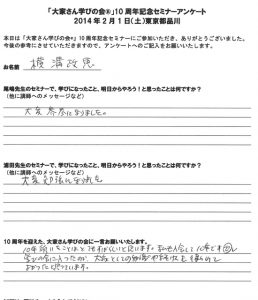 「大家さん学びの会®」10周年記念セミナーアンケート
2014年2月1日(土)東京都品川
本日は「大家さん学びの会®」10周年記念セミナーにご参加いただき、ありがとうございました。
今後の参考にさせていただきますので、アンケートへのご記入をお願いいたします。
お名前
尾嶋先生のセミナーで、学びになったこと、明日からやろう!と思ったことは何ですか?
(他に講師へのメッセージなど)
大変参考になりました。
浦田先生のセミナーで、学びになったこと、明日からやろう!と思ったことは何ですか?
(他に講師へのメッセージなど)
大変勉強になりました
10周年を迎えた、大家さん学びの会に一言お願いいたします。
10年続いたことはとてもすばらしいと思います。
よかったと思っています。